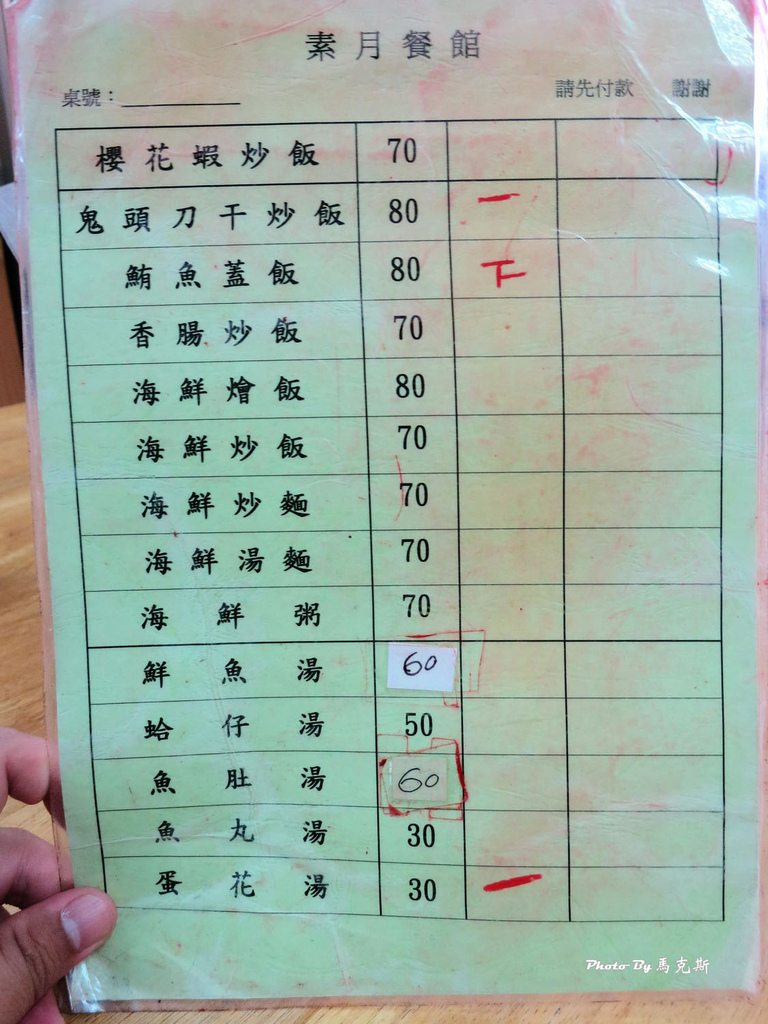 素月餐館
桌號：________ 請先付款 謝謝
櫻花蝦炒飯 70
鬼頭刀干炒飯 80 一
鮪魚蓋飯 80 下
香腸炒飯 70
海鮮燴飯 80
海鮮炒飯 70
海鮮炒麵 70
海鮮湯麵 70
海鮮粥 70
鮮魚湯 60
蛤仔湯 50
魚肚湯 60
魚丸湯 30
蛋花湯 30 一
Photo By 馬克斯